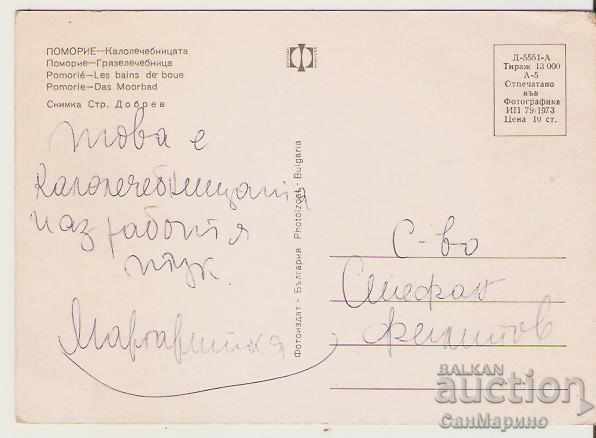 ПОМОРИЕ—Калолечебницата
Поморие—Грязелечебница
Pomorié—Les bains de boue
Pomorie—Das Moorbad
Снимка Стр. Добрев
Д-5551-А
Тираж 13 000
А-5
Отпечатано
във
Фотографика
ИП 79/1973
Цена 10 ст.
Това е
калолечебницата
и аз работя
тук.
Маргаритка
Фотоиздат - България Photoizdat - Bulgaria
С-во
Стефан
BALKAN
auction
СанМарино